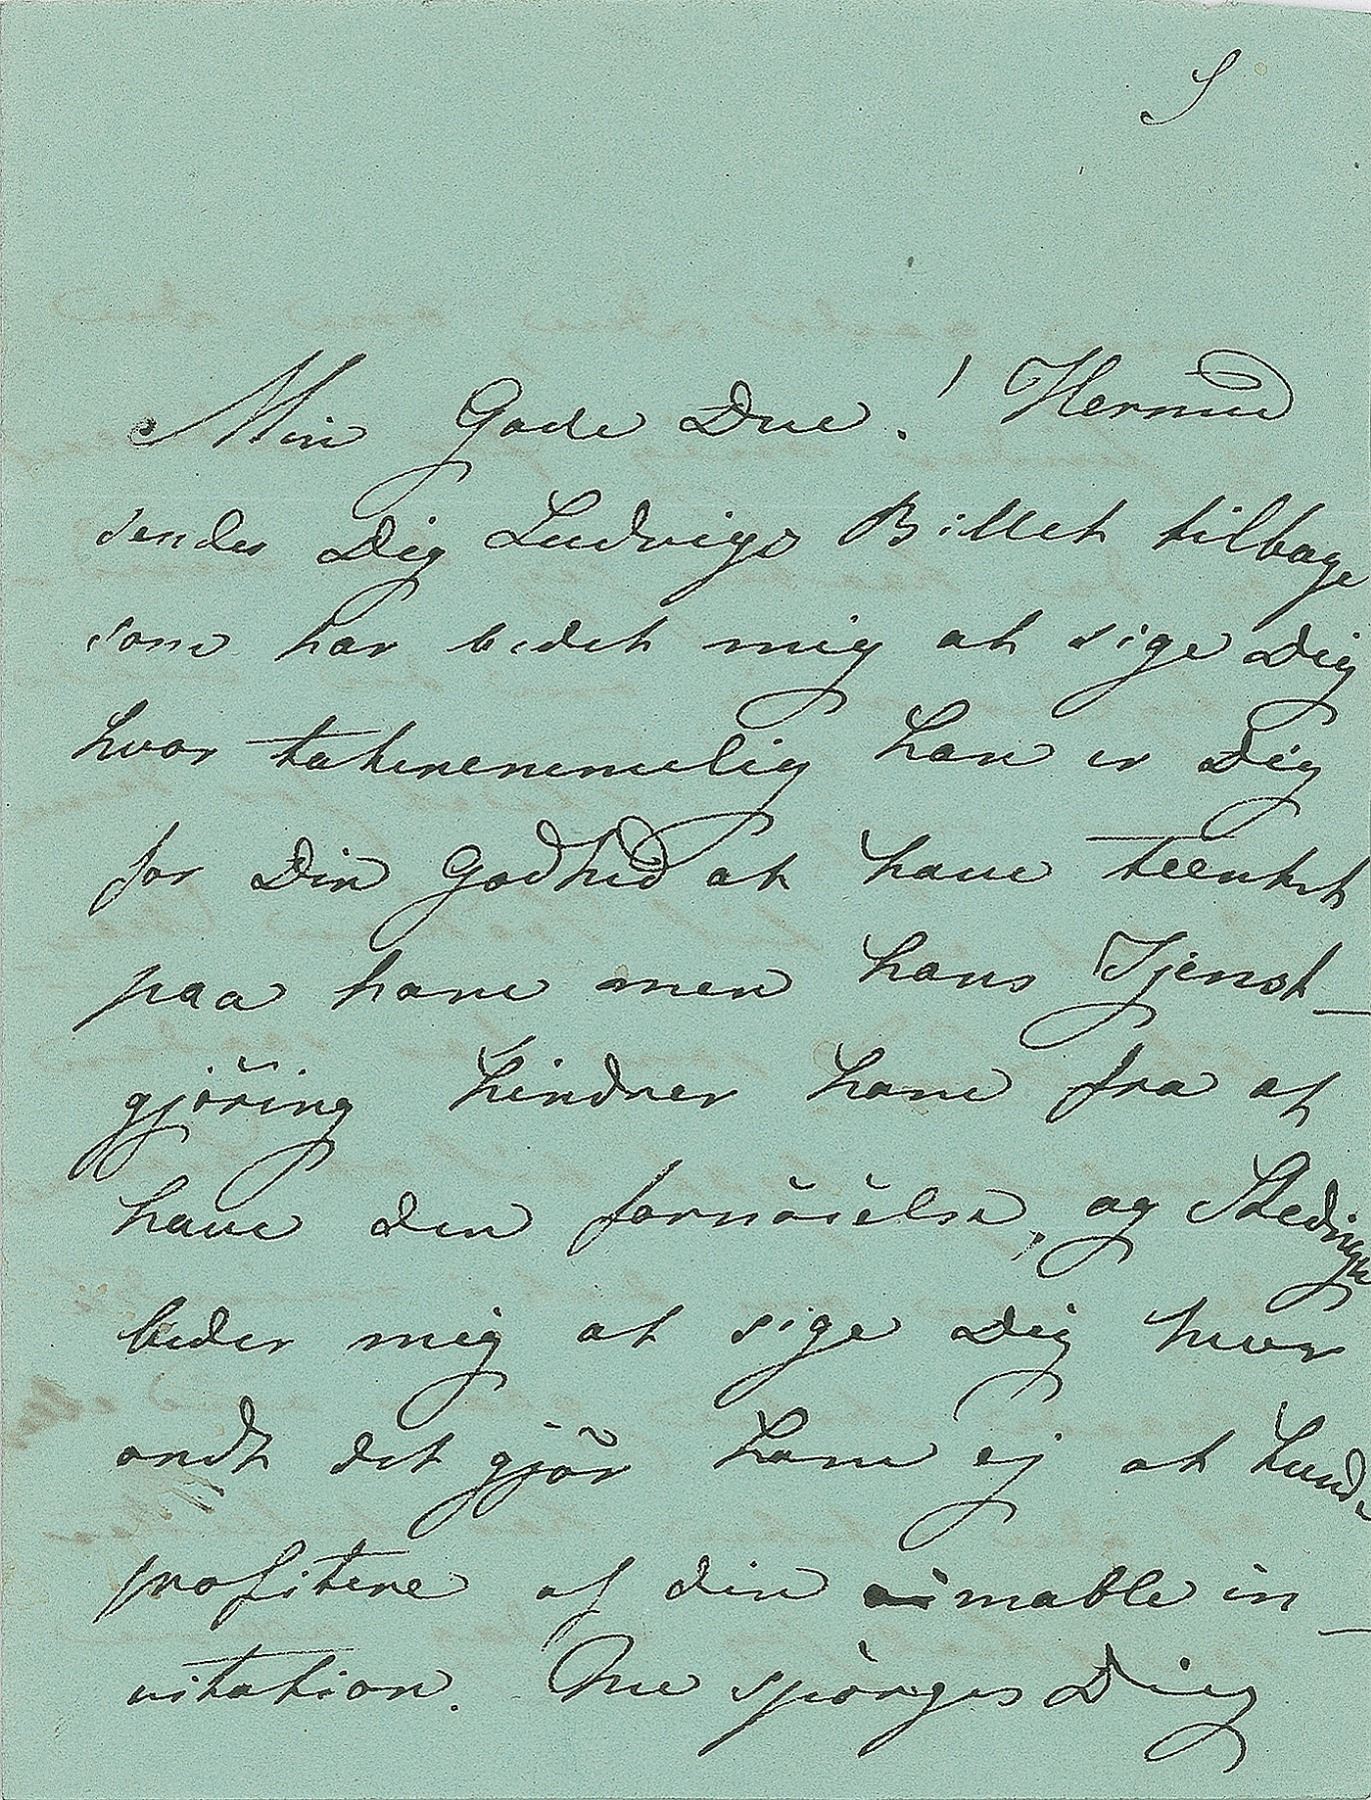 S
Min Gode Due! Hermed
sendes Dig Ludvigs Billet tilbage
som har bedet mig at sige Dig
hvor taknemmelig han er Dig
for Din Godhed at have teenkt
paa ham men hans Tjenst-
gjöring hindrer ham fra at
have den fornöielse, og Stedingk
beder mig at sige Dig hvor
ondt det gjör ham ej at kunde
profitere af din aimable in-
vitation. Nu spörges Dig